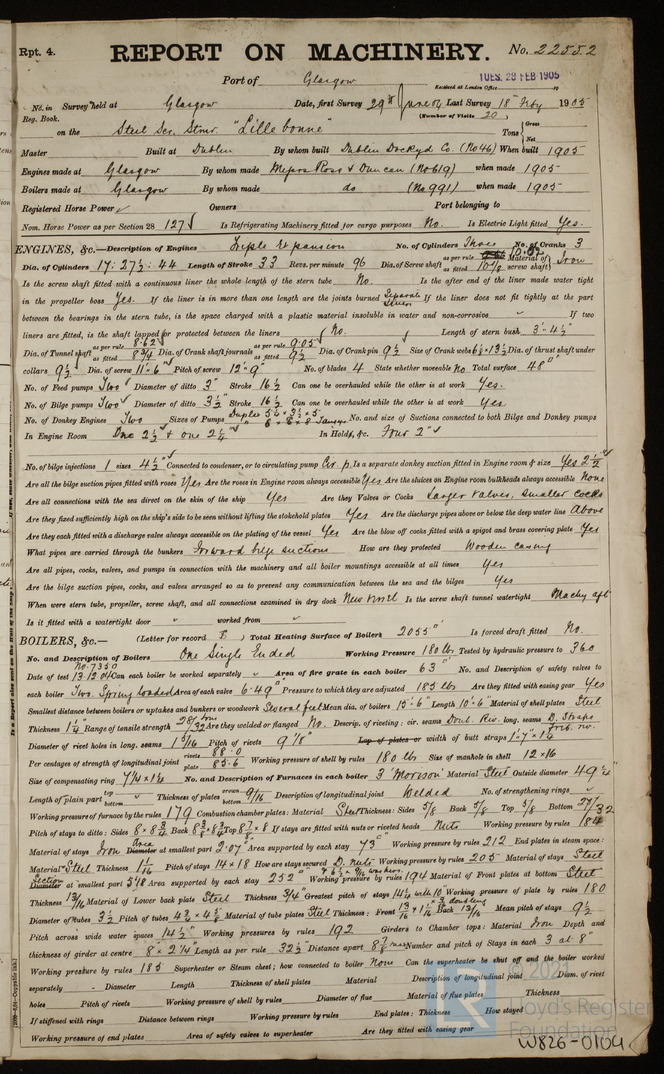 Rpt. 4.
REPORT ON MACHINERY.
No. 22552
Port of Glasgow
Received at London Office
TUES. 28 FEB 1905
No. in Survey held at Glasgow Date, first Survey 29th June 04 Last Survey 18th Feby 1905
Reg. Book.
(Number of Visits 20)
on the Steel Scr. Stmr. "Lillebonne" Tons Gross Net
Master Built at Dublin By whom built Dublin Dockyd Co. (No 46) When built 1905
Engines made at Glasgow By whom made Messrs Ross & Duncan (No 619) when made 1905
Boilers made at Glasgow By whom made do (No 991) when made 1905
Registered Horse Power Owners Port belonging to
Nom. Horse Power as per Section 28 127 Is Refrigerating Machinery fitted for cargo purposes No. Is Electric Light fitted Yes.
ENGINES, &c.—Description of Engines Triple Expansion No. of Cylinders Three No. of Cranks 3
Dia. of Cylinders 17: 27½: 44 Length of Stroke 33 Revs. per minute 96 Dia. of Screw shaft as per rule as fitted 10⅞ Material of screw shaft Iron
Is the screw shaft fitted with a continuous liner the whole length of the stern tube No. Is the after end of the liner made water tight
in the propeller boss Yes. If the liner is in more than one length are the joints burned Separate liners If the liner does not fit tightly at the part
between the bearings in the stern tube, is the space charged with a plastic material insoluble in water and non-corrosive If two
liners are fitted, is the shaft lapped or protected between the liners No. Length of stern bush 3'-4½"
Dia. of Tunnel shaft as per rule 8.62 as fitted 8¾ Dia. of Crank shaft journals as per rule 9.05 as fitted 9½ Dia. of Crank pin 9½ Size of Crank webs 6½ x 13½ Dia. of thrust shaft under
collars 9½ Dia. of screw 11'-6" Pitch of screw 12'-9" No. of blades 4 State whether moveable No Total surface 48
No. of Feed pumps Two Diameter of ditto 3" Stroke 16½ Can one be overhauled while the other is at work Yes.
No. of Bilge pumps Two Diameter of ditto 3½ Stroke 16½ Can one be overhauled while the other is at work Yes
No. of Donkey Engines Two Sizes of Pumps Duplex No. and size of Suctions connected to both Bilge and Donkey pumps
In Engine Room One 2½ & one 2¼" In Holds, &c. Four 2"
No. of bilge injections 1 sizes 4½" Connected to condenser, or to circulating pump Cir. p. Is a separate donkey suction fitted in Engine room & size Yes 2½
Are all the bilge suction pipes fitted with roses Yes Are the roses in Engine room always accessible Yes Are the sluices on Engine room bulkheads always accessible None
Are all connections with the sea direct on the skin of the ship Yes Are they Valves or Cocks Larger Valves, smaller cocks
Are they fixed sufficiently high on the ship's side to be seen without lifting the stokehold plates Yes Are the discharge pipes above or below the deep water line Above
Are they each fitted with a discharge valve always accessible on the plating of the vessel Yes Are the blow off cocks fitted with a spigot and brass covering plate Yes
What pipes are carried through the bunkers Forward bilge suctions How are they protected Wooden casing
Are all pipes, cocks, valves, and pumps in connection with the machinery and all boiler mountings accessible at all times Yes
Are the bilge suction pipes, cocks, and valves arranged so as to prevent any communication between the sea and the bilges Yes
When were stern tube, propeller, screw shaft, and all connections examined in dry dock New vessel Is the screw shaft tunnel watertight Machy aft
Is it fitted with a watertight door worked from
BOILERS, &c.— (Letter for record E) Total Heating Surface of Boilers 2055 Is forced draft fitted No.
No. and Description of Boilers One Single Ended Working Pressure 180 lbs Tested by hydraulic pressure to 360
No. 7350
Date of test 13.12.04 Can each boiler be worked separately Area of fire grate in each boiler 63 No. and Description of safety valves to
each boiler Two. Spring loaded Area of each valve 6.49 Pressure to which they are adjusted 185 lbs Are they fitted with easing gear Yes
Smallest distance between boilers or uptakes and bunkers or woodwork Several feet Mean dia. of boilers 15'-6" Length 10'-6 Material of shell plates Steel
Thickness 1¼ Range of tensile strength 28/32 tons Are they welded or flanged No. Descrip. of riveting: cir. seams Doub. Riv. long. seams D. Straps
Diameter of rivet holes in long. seams 1 5/16 Pitch of rivets 9⅛ Lap of plates or width of butt straps
Per centages of strength of longitudinal joint rivets 88.0 plate 85.6 Working pressure of shell by rules 180 lbs Size of manhole in shell 12 x 16
Size of compensating ring No. and Description of Furnaces in each boiler 3 "Morison" Material Steel Outside diameter 49¼
Length of plain part top bottom Thickness of plates crown bottom 9/16 Description of longitudinal joint Welded No. of strengthening rings
Working pressure of furnace by the rules 179 Combustion chamber plates: Material Steel Thickness: Sides 5/8 Back 5/8 Top 5/8 Bottom 27/32
Pitch of stays to ditto: Sides Back Top If stays are fitted with nuts or riveted heads Nuts Working pressure by rules 184
Material of stays Iron Area at smallest part 2.07 Area supported by each stay 73 Working pressure by rules 212 End plates in steam space:
Material Steel Thickness 1 1/16 Pitch of stays 14 x 18 How are stays secured D. nuts Working pressure by rules 205 Material of stays Steel
Diameter at smallest part Area supported by each stay 252 Working pressure by rules 194 Material of Front plates at bottom Steel
Thickness 13/16 Material of Lower back plate Steel Thickness 3/4" Greatest pitch of stays Working pressure of plate by rules 180
Diameter of tubes 3½ Pitch of tubes Material of tube plates Steel Thickness: Front Back 13/16 Mean pitch of stays 9½
Pitch across wide water spaces 14½" Working pressures by rules 192 Girders to Chamber tops: Material Iron Depth and
thickness of girder at centre 8" x 2¼" Length as per rule 32½ Distance apart Number and pitch of Stays in each 3 at 8"
Working pressure by rules 185 Superheater or Steam chest; how connected to boiler None Can the superheater be shut off and the boiler worked
separately Diameter Length Thickness of shell plates Material Description of longitudinal joint Diam. of rivet
holes Pitch of rivets Working pressure of shell by rules Diameter of flue Material of flue plates Thickness
If stiffened with rings Distance between rings Working pressure by rules End plates: Thickness How stayed
Working pressure of end plates Area of safety valves to superheater Are they fitted with easing gear
© 2021
Lloyd's Register
Foundation
W826-0104